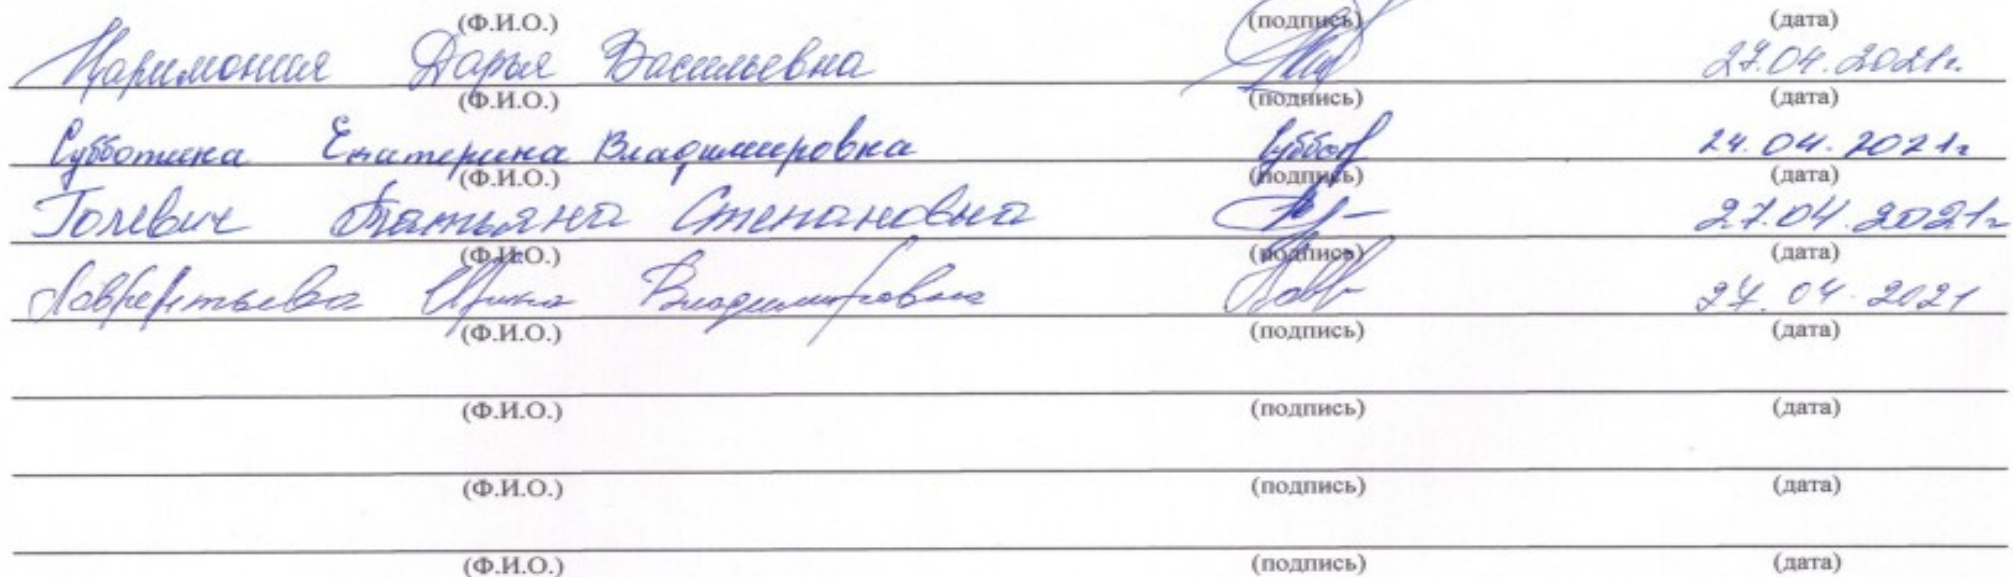 (Ф.И.О.) (подпись) (дата)
Дарья Васильевна 27.04.2021г.
(Ф.И.О.) (подпись) (дата)
Субботина Екатерина Владимировна Суббот 24.04.2021г
(Ф.И.О.) (подпись) (дата)
Голевич Татьяна Степановна 27.04.2021г
(Ф.И.О.) (подпись) (дата)
Лаврентьева Ирина Владимировна 27.04.2021
(Ф.И.О.) (подпись) (дата)
(Ф.И.О.) (подпись) (дата)
(Ф.И.О.) (подпись) (дата)
(Ф.И.О.) (подпись) (дата)